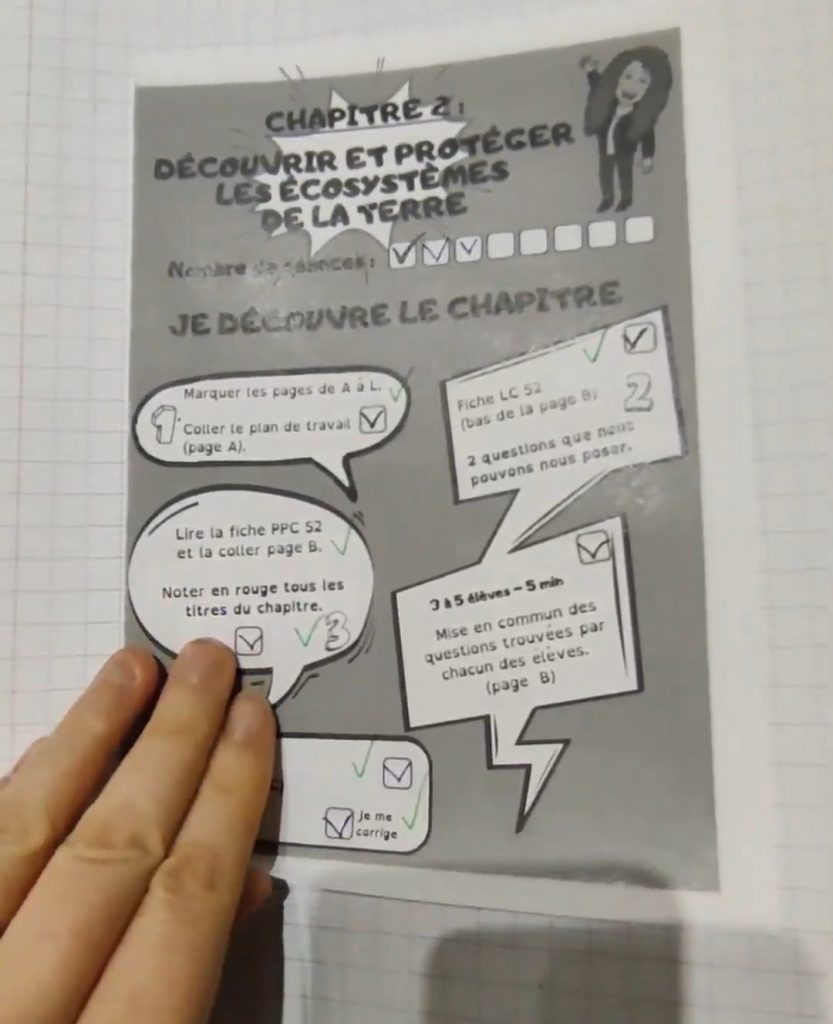 CHAPITRE 2 :
DÉCOUVRIR ET PROTÉGER
LES ÉCOSYSTÈMES
DE LA TERRE
Nombre de séances :
JE DÉCOUVRE LE CHAPITRE
1
Marquer les pages de A à L.
Coller le plan de travail
(page A).
Fiche LC S2
(bas de la page B)
2
2 questions que nous
pouvons nous poser.
Lire la fiche PPC S2
et la coller page B.
Noter en rouge tous les
titres du chapitre.
3
3 à 5 élèves – 5 min
Mise en commun des
questions trouvées par
chacun des élèves.
(page B)
Je me
corrige